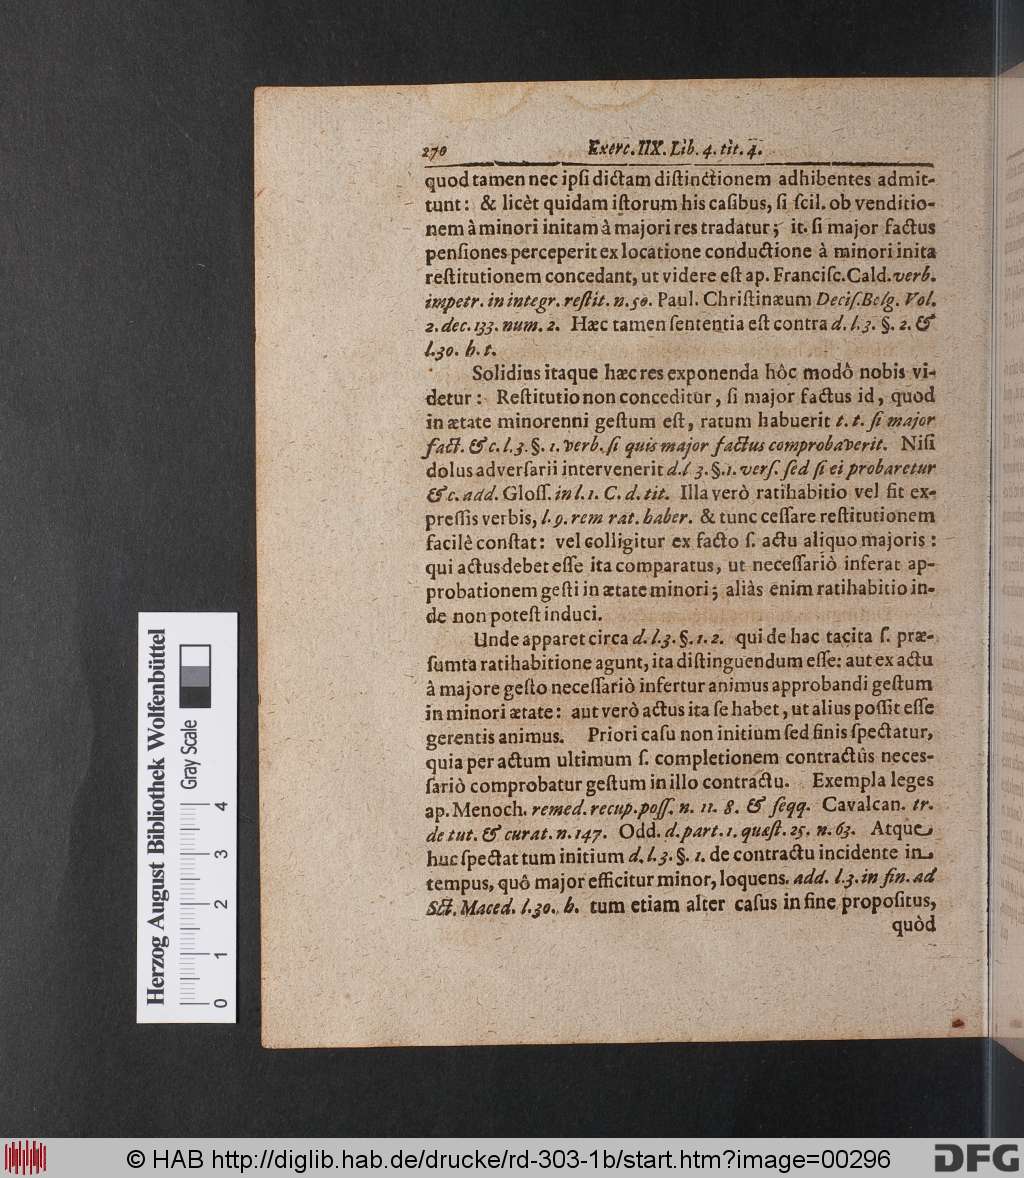 270 Exerc. IIX. Lib. 4. tit. 4.
quod tamen nec ipſi dictam diſtinctionem adhibentes admit-
tunt: & licèt quidam iſtorum his caſibus, ſi ſcil. ob venditio-
nem à minori initam à majori res tradatur; it. ſi major factus
penſiones perceperit ex locatione conductione à minori inita
reſtitutionem concedant, ut videre eſt ap. Franciſc. Cald. verb.
impetr. in integr. reſtit. n. 50. Paul. Chriſtinæum Deciſ. Belg. Vol.
2. dec. 133. num. 2. Hæc tamen ſententia eſt contra d. l. 3. §. 2. &
l. 30. h. t.
Solidius itaque hæc res exponenda hôc modô nobis vi-
detur: Reſtitutio non conceditur, ſi major factus id, quod
in ætate minorenni geſtum eſt, ratum habuerit t. t. ſi major
fact. & c. l. 3. §. 1. verb. ſi quis major factus comprobaverit. Niſi
dolus adverſarii intervenerit d. l 3. §. 1. verſ. ſed ſi ei probaretur
& c. add. Gloſſ. in l. 1. C. d. tit. Illa verò ratihabitio vel fit ex-
preſſis verbis, l. 9. rem rat. haber. & tunc ceſſare reſtitutionem
facilè conſtat: vel colligitur ex facto ſ. actu aliquo majoris:
qui actus debet eſſe ita comparatus, ut neceſſariò inferat ap-
probationem geſti in ætate minori; aliàs enim ratihabitio in-
de non poteſt induci.
Unde apparet circa d. l. 3. §. 1. 2. qui de hac tacita ſ. præ-
ſumta ratihabitione agunt, ita diſtinguendum eſſe: aut ex actu
à majore geſto neceſſariò infertur animus approbandi geſtum
in minori ætate: aut verò actus ita ſe habet, ut alius poſſit eſſe
gerentis animus. Priori caſu non initium ſed finis ſpectatur,
quia per actum ultimum ſ. completionem contractûs neceſ-
ſariò comprobatur geſtum in illo contractu. Exempla leges
ap. Menoch. remed. recup. poſſ. n. 11. 8. & ſeqq. Cavalcan. tr.
de tut. & curat. n. 147. Odd. d. part. 1. quæſt. 25. n. 63. Atque
huc ſpectat tum initium d. l. 3. §. 1. de contractu incidente in
tempus, quô major efficitur minor, loquens. add. l. 3. in fin. ad
Sct. Maced. l. 30. h. tum etiam alter caſus in fine propoſitus,
quòd
Herzog August Bibliothek Wolfenbüttel
Gray Scale
0 1 2 3 4
© HAB http://diglib.hab.de/drucke/rd-303-1b/start.htm?image=00296
DFG